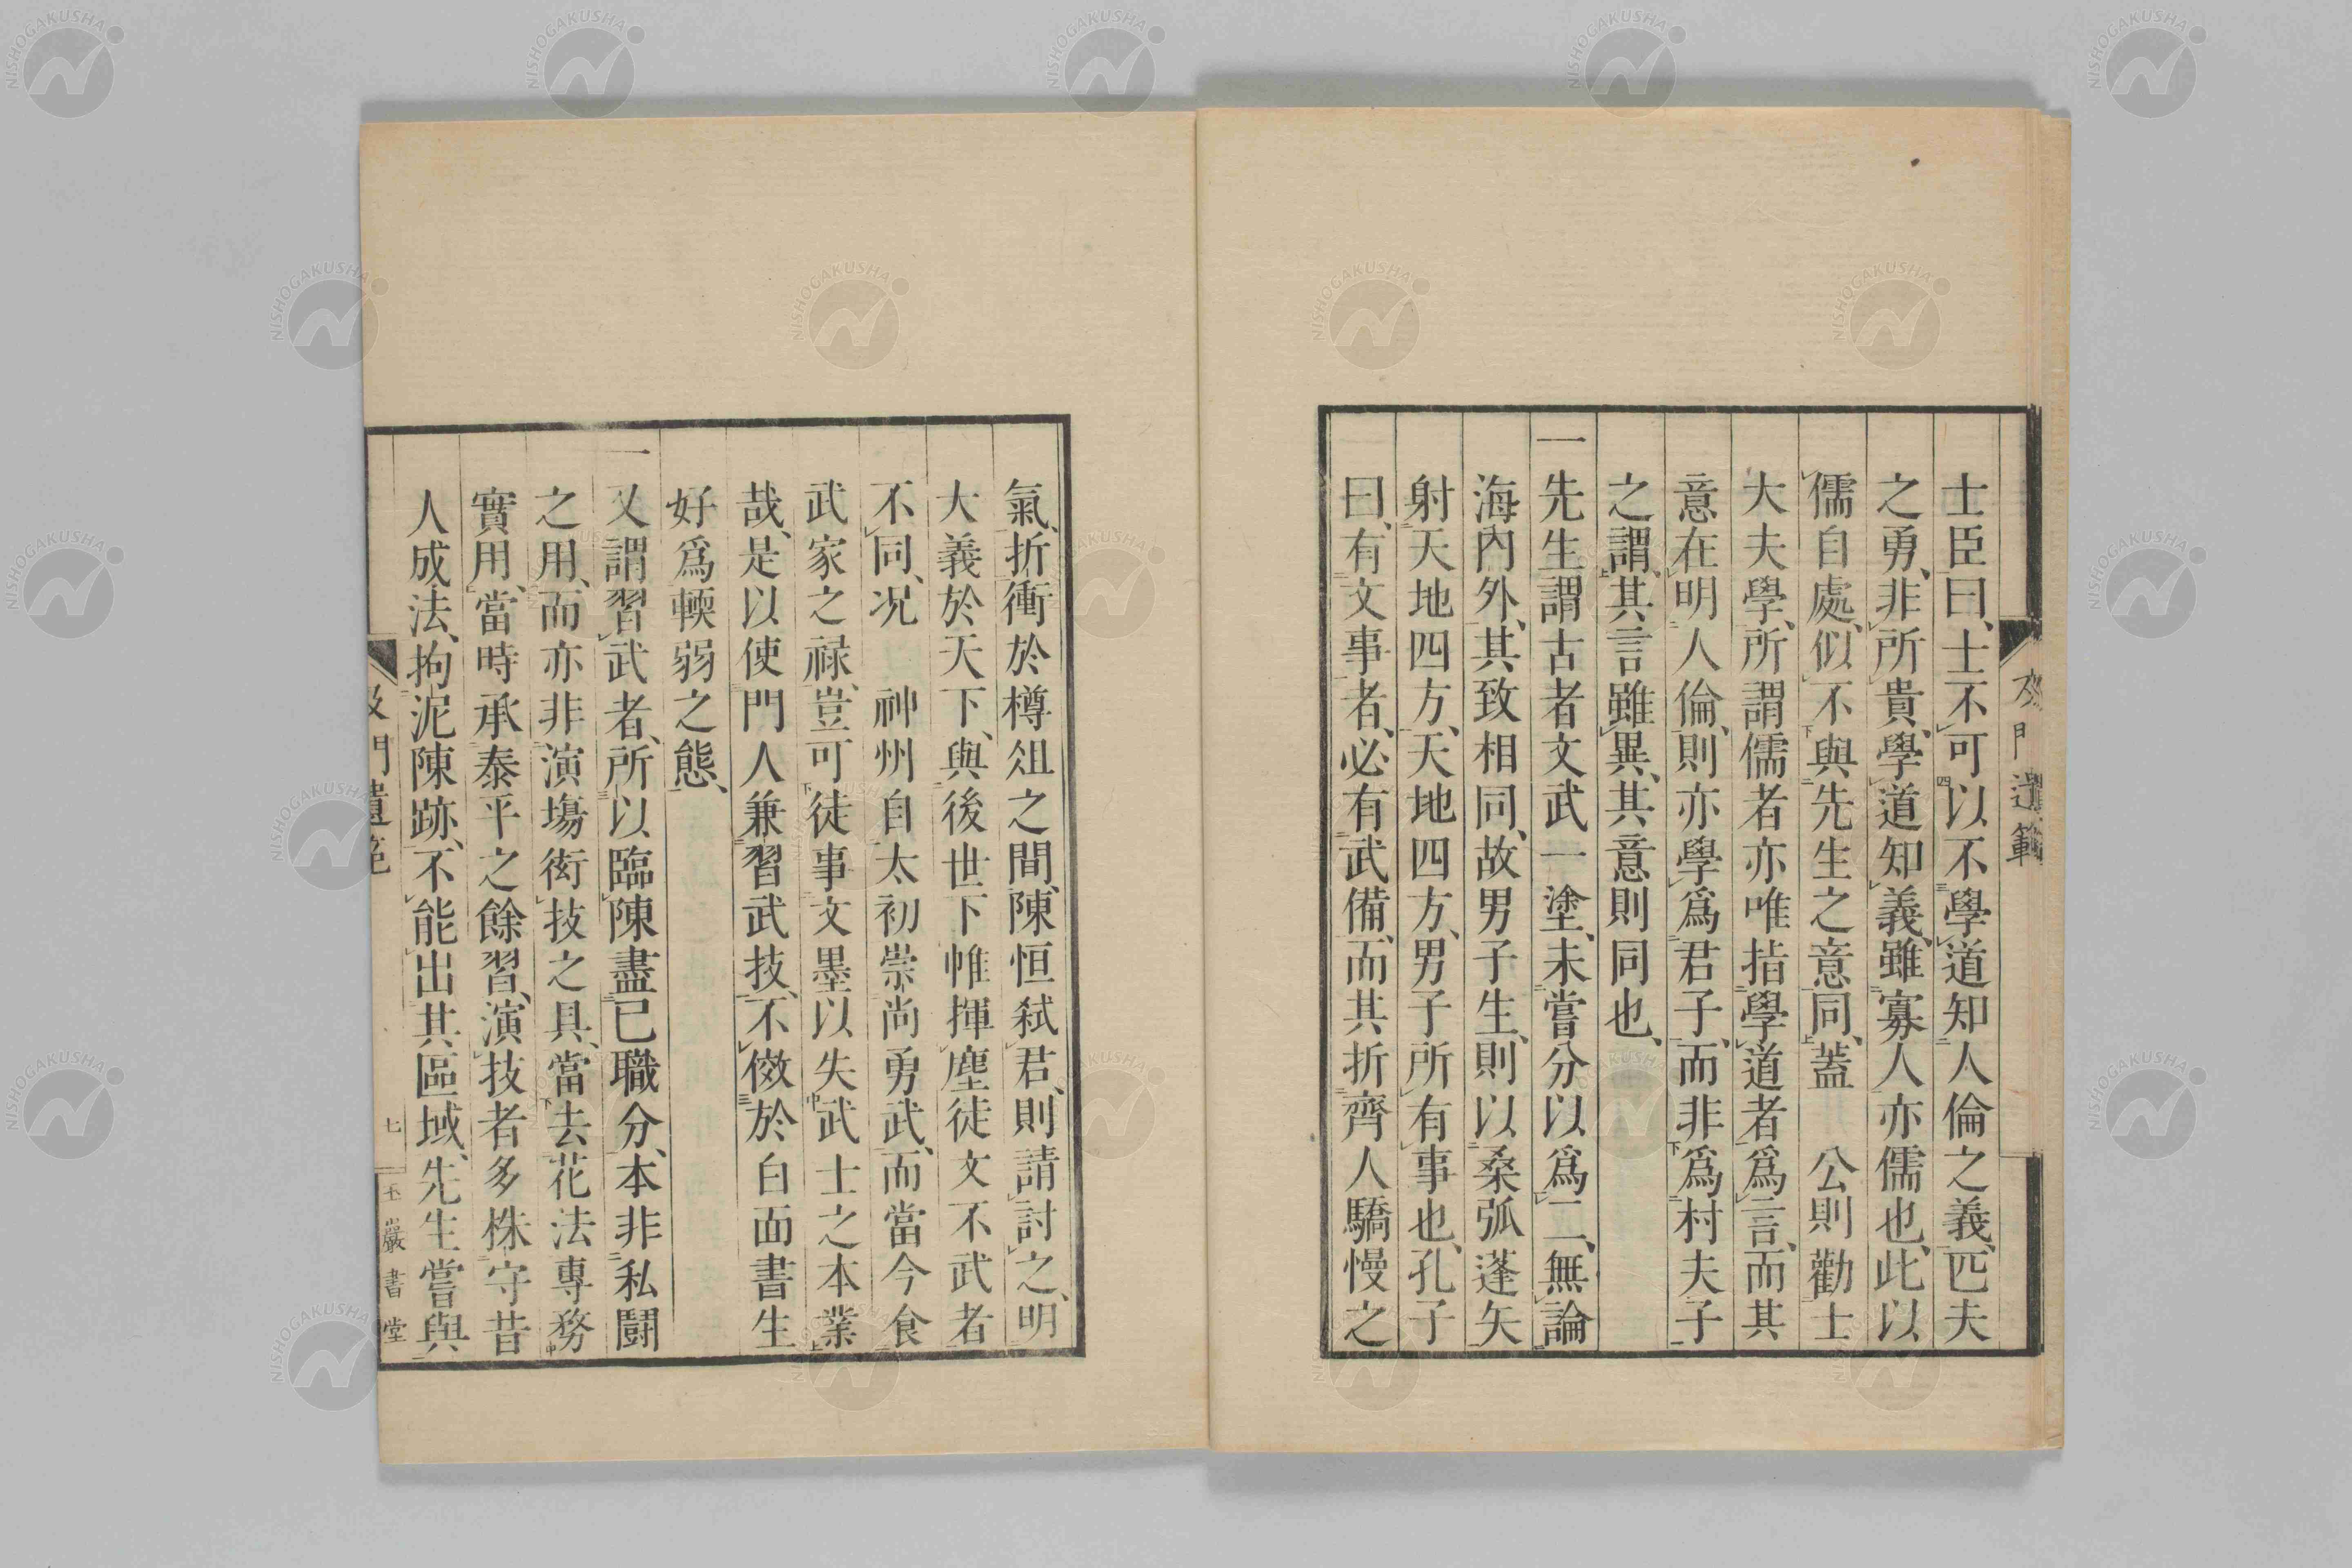 士臣曰、士不可以不學道知人倫之義、匹夫
之勇、非所貴、學道知義、雖寡人亦儒也、此以
儒自處、似不與先生之意同、蓋　公則勸士
大夫學、所謂儒者亦唯指學道者爲言、而其
意在明人倫、則亦學爲君子、而非爲村夫子
之謂、其言雖異、其意則同也、
一先生謂古者文武一塗、未嘗分以爲二、無論
海內外、其致相同、故男子生、則以桑弧蓬矢
射天地四方、天地四方、男子所有事也、孔子
曰、有文事者、必有武備、而其折齊人驕慢之
氣、折衝於樽俎之間、陳恒弑君、則請討之、明
大義於天下、與後世下帷揮塵徒文不武者
不同、况　神州自太初崇尚勇武、而當今食
武家之祿、豈可徒事文墨以失武士之本業
哉、是以使門人兼習武技、不傚於白面書生
好爲輭弱之態、
一又謂習武者、所以臨陳盡已職分、本非私鬪
之用、而亦非演塲衒技之具、當去花法專務
實用、當時承泰平之餘習、演技者多株守昔
人成法、拘泥陳跡、不能出其區域、先生嘗與
及門遺範
七
玉巖書堂